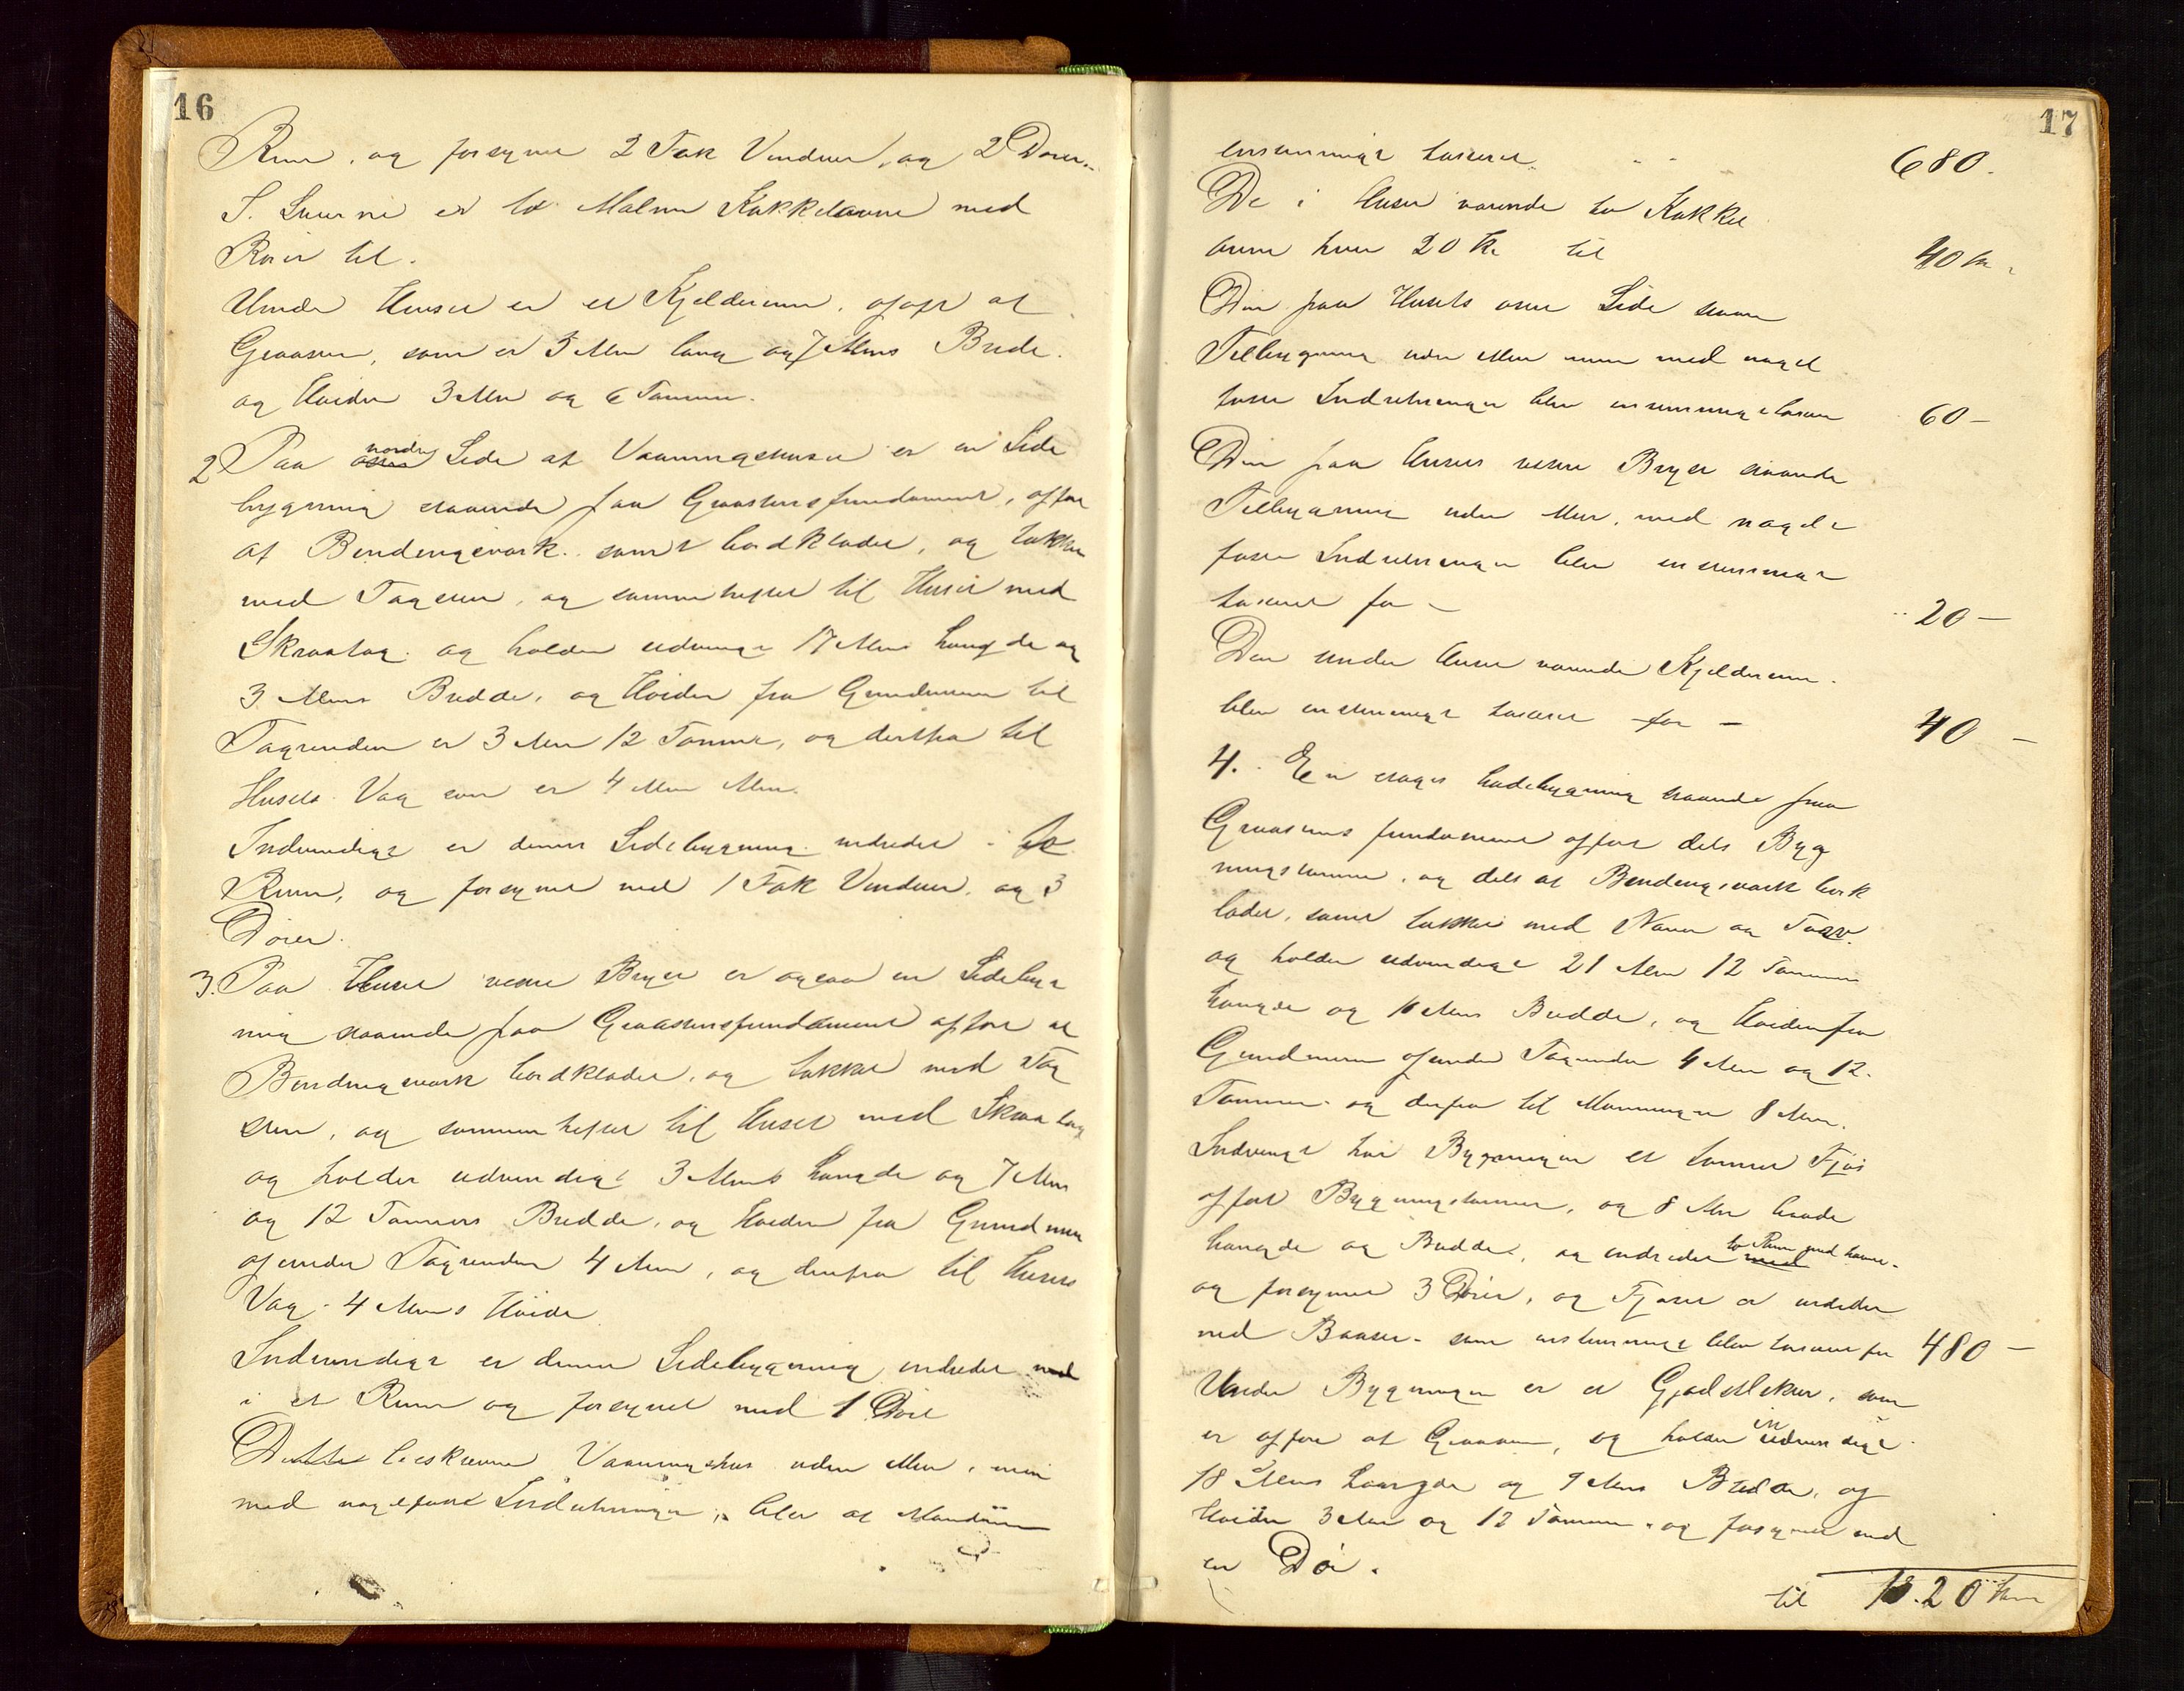 16
Rum, og forsynet 2 Fak Vinduer, og 2 Dører.
I Huset er to Malm Kakkelovne med
Rør til.
Under Huset er et Kjelderrum, opført af
Graasten, som er 5 Alen lang og 7 Alens Brede.
og Høiden 3 Alen og 6 Tommer.
2 Paa nordre Side af Vaaningshuset er en Side
bygning staaende paa Graastensfundament, opført
af Bindingsværk. samt bordklædt, og takket
med Tagsten, og sammenheftet til Huset med
Skraatag. og holder udvendige 17 Alens Længde og
3 Alens Bredde, og Høiden fra Grundmuren til
Tagrenden er 3 Alen 12 Tommer, og derfra til
Husets Væg som er 4 Alen
Indvendige er denne Sidebygning indredet i to
Rum, og forsynet med 1 Fak Vinduer, og 3
Dører.
3. Paa Huset vestre Bryst er ogsaa en Sidebyg
ning staaende paa Graastensfundament opført af
Bindingsværk bordklædt, og takket med Tag
sten, og sammenheftet til Huset med Skraatag
og holder udvendige 3 Alens Længde og 7 Alen
og 12 Tommers Bredde, og Høiden fra Grundmuren
og under Tagrenden 4 Alen, og derfra til Husets
Væg 4 Alens Høide
Indvendige er denne Sidebygning indredet
i et Rum og forsynet med 1 Dør
Dette beskrevne Vaaningshus uden Mur, men
med nagelfaste Indretninger, blev af Mændene
17
enstemmige taxeret 680.
De i Huset værende to Kakkel
ovne hver 20 Kr til 40 Kr.
Den paa Husets Side staaende
Tilbygning uden Mur men med nagel
faste Indretninger blev enstemmige taxeret 60 –
Den paa Husets vestre Bryst staaende
Tilbygning uden Mur, med nagel
faste Indretninger blev enstemmige
taxeret for – 20 –
Den under Huset værende Kjelderrum.
blev enstemmige taxeret for – 40 –
4. En etages Ladebygning staaende paa
Graastens fundament opført dels Byg
ningstømmer, og dels af Bindingsværk bordk
lædet, samt takket med Næver og Torv.
og holder udvendige 21 Alen 12 Tommer
Længde og 10 Alens Bredde, og Høiden fra
Grundmuren og under Tagrenden 4 Alen og 12.
Tommer og derfra til Mønningen 8 Alen.
Indvendige har Bygningen et tømret Fjøs
opført Bygningstømmer, og 8 Alen baade
Længde og Bredde, og indredet to Rum
og forsynet 3 Dører, og Fjøset er indredet
med Baaser. som enstemmige blev taxeret for 480 –
Under Bygningen er et Gjødselskur, som
er opført af Graasten, og holder indvendige
18 Alens Længde og 9 Alens Bredde, og
Høiden 3 Alen og 12 Tommer og forsynet med
en Dør.
til 13.20 Kroner